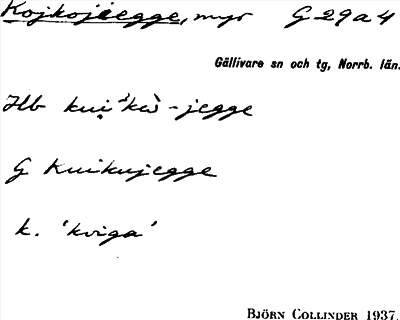 Kojkojeegge, myr G 29 a 4
Gällivare sn och tg, Norrb. län.
Hb kui̯ˀkù-jegge
G Kuikujegge
k. 'kviga'
BJÖRN COLLINDER 1937.